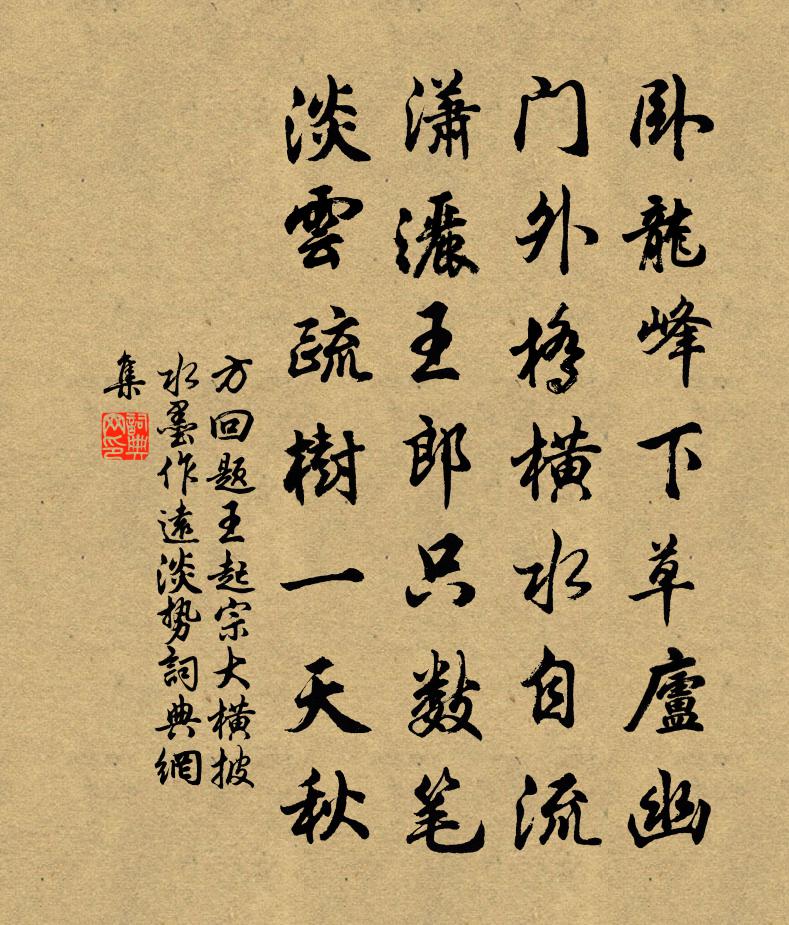 卧龍峰下草廬幽
门外橋橫水自流
瀟灑王郎只数笔
淡雲疏樹一天秋
方回题王起宗大橫披
水墨作遠淡势詞典網
集
詞典網印